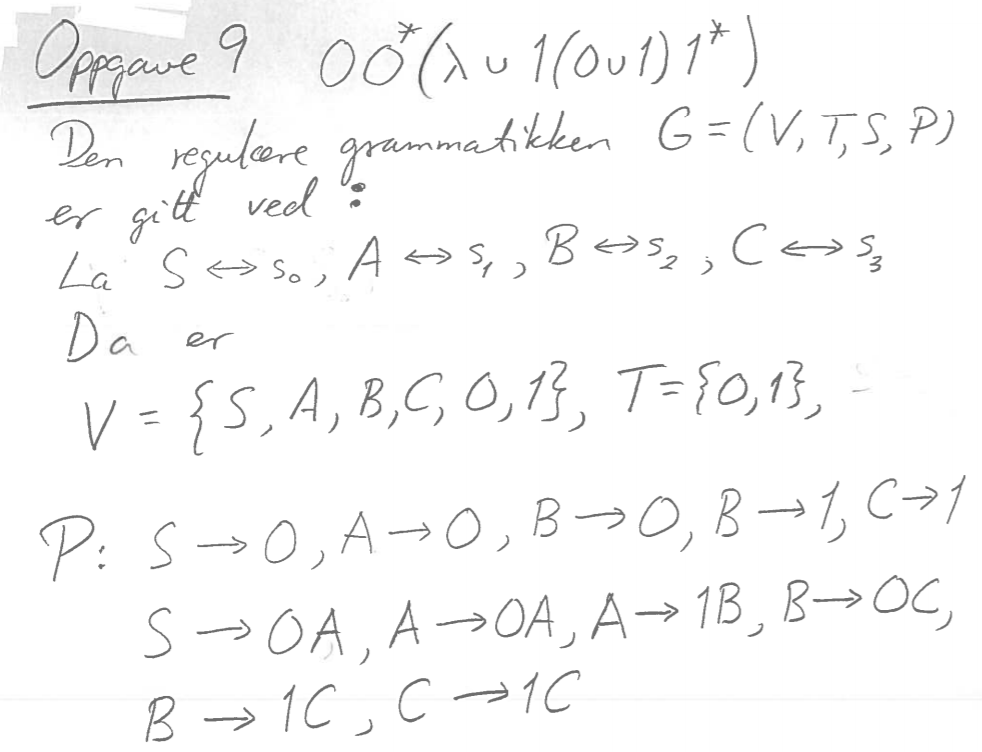 Oppgave 9 00*(λ ∪ 1(0∪1)1*)
Den regulære grammatikken G=(V,T,S,P)
er gitt ved :
La S ↔ s₀, A ↔ s₁, B ↔ s₂, C ↔ s₃
Da er
V = {S, A, B, C, 0, 1}, T={0,1},
P: S → 0, A → 0, B → 0, B → 1, C → 1
S → 0A, A → 0A, A → 1B, B → 0C,
B → 1C, C → 1C